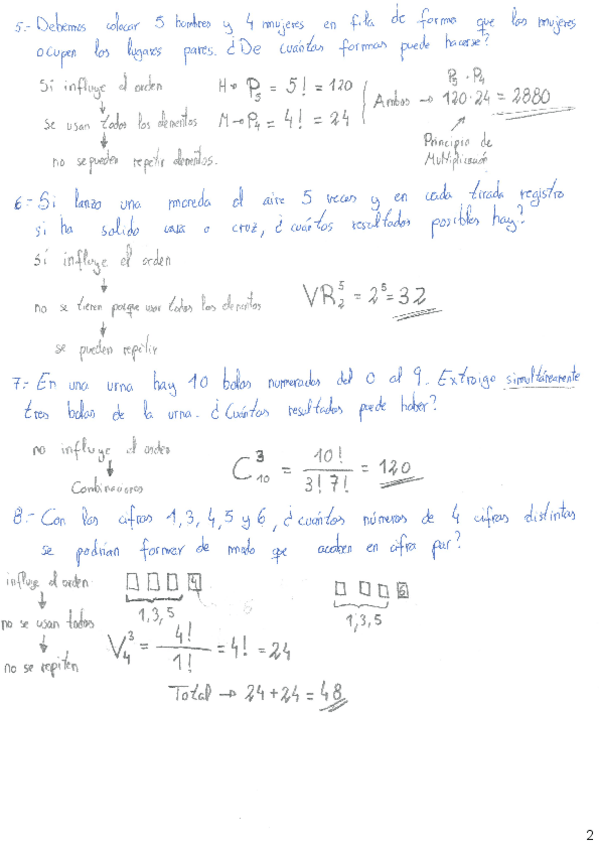 5.- Debemos colocar 5 hombres y 4 mujeres en fila de forma que las mujeres
ocupen los lugares pares. ¿De cuántas formas puede hacerse?
Sí influye el orden
↓
se usan todos los elementos
↓
no se pueden repetir elementos.
H → P₅ = 5! = 120
M → P₄ = 4! = 24
P₅ · P₄
Ambos → 120 · 24 = 2880
Principio de
Multiplicación
6.- Si lanzo una moneda al aire 5 veces y en cada tirada registro
si ha salido cara o cruz, ¿cuántos resultados posibles hay?
sí influye el orden
↓
no se tienen porque usar todos los elementos
↓
se pueden repetir
VR₂⁵ = 2⁵ = 32
7.- En una urna hay 10 bolas numeradas del 0 al 9. Extraigo simultáneamente
tres bolas de la urna. ¿Cuántos resultados puede haber?
no influye el orden
↓
Combinaciones
C₁₀³ = 10! / 3! 7! = 120
8.- Con las cifras 1, 3, 4, 5 y 6, ¿cuántos números de 4 cifras distintas
se podrían formar de modo que acaben en cifra par?
influye el orden
↓
no se usan todos
↓
no se repiten
□ □ □ 4
1, 3, 5
6
□ □ □ 6
1, 3, 5
V₄³ = 4! / 1! = 4! = 24
Total → 24 + 24 = 48
2